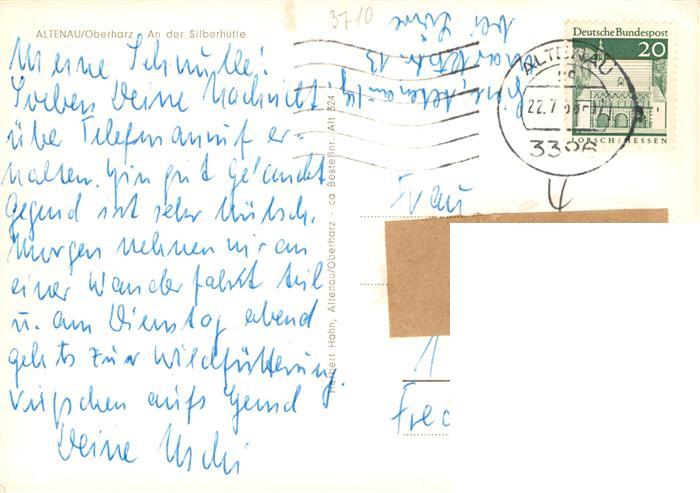 3710
ALTENAU/Oberharz - An der Silberhütte
Meine Schnulle!
Soeben Deine Nachricht
über Telefonanruf er-
halten. Bin gut gelandet
Gegend ist sehr hübsch.
Morgen nehmen wir an
einer Wanderfahrt teil
u. am Dienstag abend
gehts zur Wildfütterung.
Küsschen aufs Hemd
Deine Uschi
Herbert Hahn, Altenau/Oberharz - ca Bestellnr. Alt 324
bei
Marktstr. 13
Altenau
Deutsche Bundespost
20
LORSCH/HESSEN
ALTENAU
22.7
3396
Frau
1
Fre